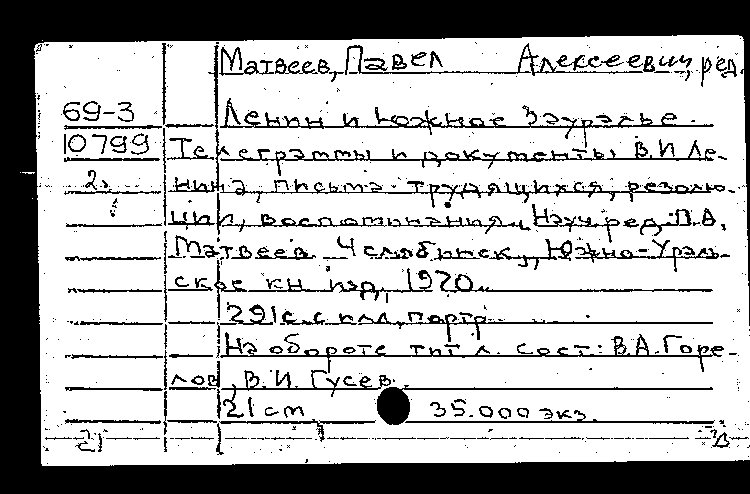 Матвеев, Павел Алексеевич, ред.
69-3 Ленин и Южное Зауралье.
10799 Телеграммы и документы В.И Ле-
2. нина, письма трудящихся, резолю-
ции, воспоминания. Науч. ред. П.А.
Матвеев. Челябинск, Южно-Ураль-
ское кн изд, 1970.
291с. с илл, портр.
На обороте тит. л. сост: В.А. Горе-
лов, В.И. Гусев.
21 cm 35.000 экз.
21